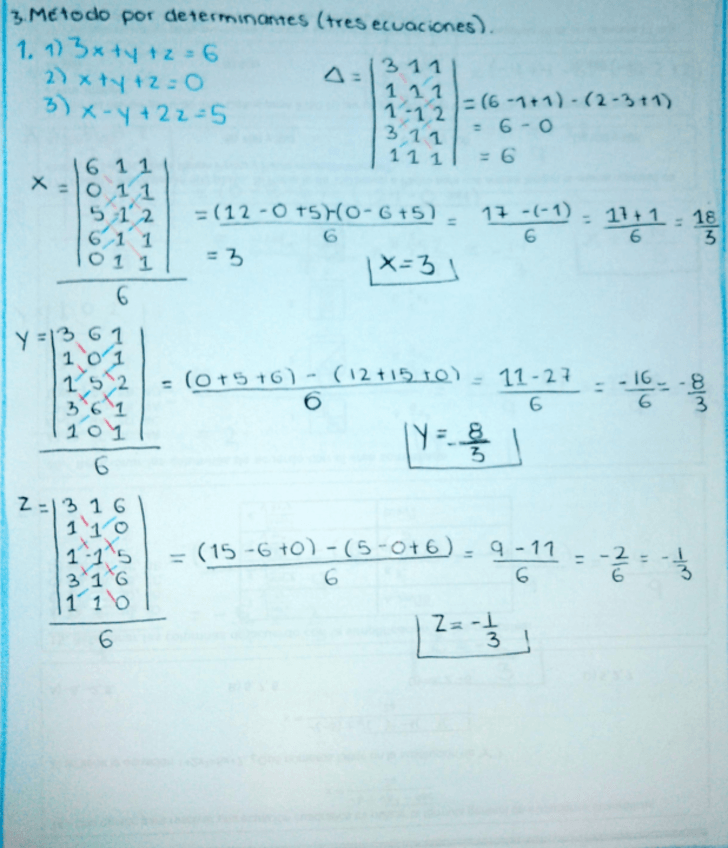 3. Método por determinantes (tres ecuaciones).
1. 1) 3x+y+z=6
2) x+y+z=0
3) x-y+2z=5
Δ = | 3 1 1 |
| 1 1 1 |
| 1 -1 2 | = (6-1+1)-(2-3+1)
| 3 1 1 | = 6-0
| 1 1 1 | = 6
x = | 6 1 1 |
| 0 1 1 |
| 5 -1 2 | = (12-0+5)-(0-6+5) / 6 = 17-(-1) / 6 = 17+1 / 6 = 18 / 3
| 6 1 1 | = 3
| 0 1 1 | x=3
6
Y = | 3 6 1 |
| 1 0 1 |
| 1 5 2 | = (0+5+6) - (12+15+0) / 6 = 11-27 / 6 = -16 / 6 = -8 / 3
| 3 6 1 |
| 1 0 1 | Y=-8/3
6
Z = | 3 1 6 |
| 1 1 0 |
| 1 -1 5 | = (15-6+0)-(5-0+6) / 6 = 9-11 / 6 = -2 / 6 = -1 / 3
| 3 1 6 |
| 1 1 0 | Z=-1/3
6